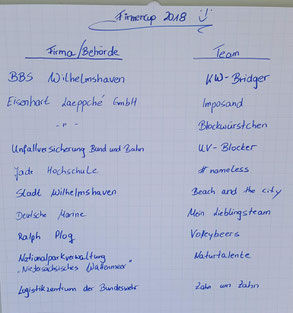 Firmencup 2018
Firma/Behörde Team
BBS Wilhelmshaven KW-Bridger
Eisenhart Laeppché GmbH Imposand
-"- Blockwürstchen
Unfallversicherung Bund und Bahn UV-Blocker
Jade Hochschule #nameless
Stadt Wilhelmshaven Beach and the city
Deutsche Marine Mein Lieblingsteam
Ralph Plog Volleybeers
Nationalparkverwaltung Naturtalente
"Niedersächsisches Wattenmeer"
Logistikzentrum der Bundeswehr Zahn um Zahn